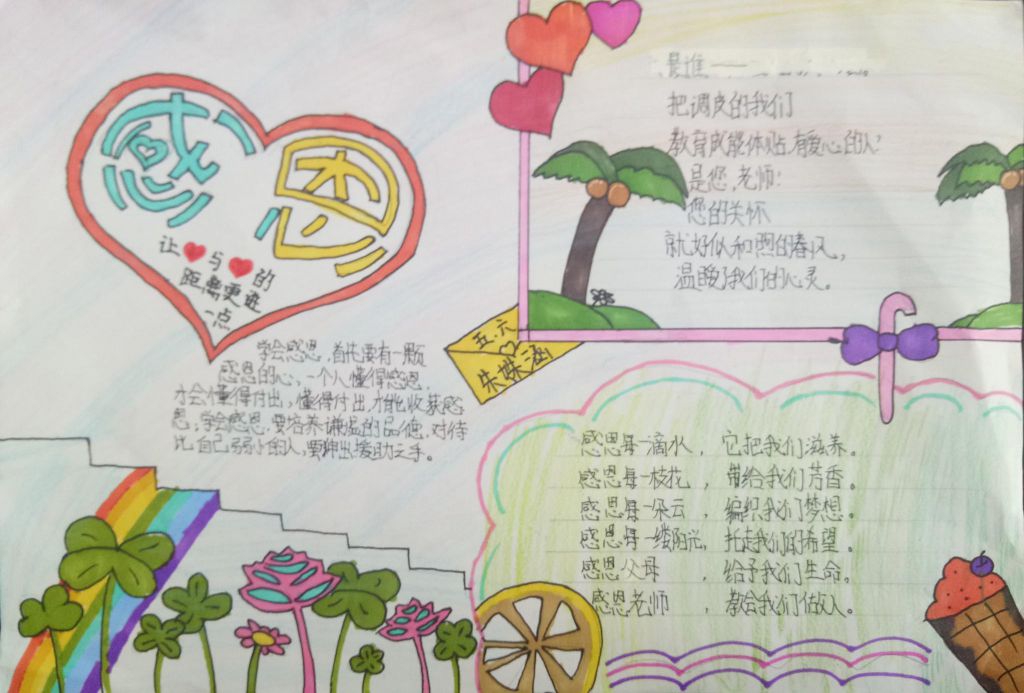 感恩
让❤与❤的
距离更进
一点
学会感恩,首先要有一颗
感恩的心,一个人懂得感恩,
才会懂得付出,懂得付出,才能收获感
恩;学会感恩,要培养谦逊的品德,对待
比自己弱小的人,要伸出援助之手。
五.六
朱蝶涵
是谁——
把调皮的我们
教育成能体贴、有爱心的人?
是您,老师!
您的关怀
就好似和煦的春风,
温暖了我们的心灵。
感恩每一滴水,它把我们滋养。
感恩每一枝花,带给我们芳香。
感恩每一朵云,编织我们梦想。
感恩每一缕阳光,托起我们的希望。
感恩父母,给予我们生命。
感恩老师,教会我们做人。